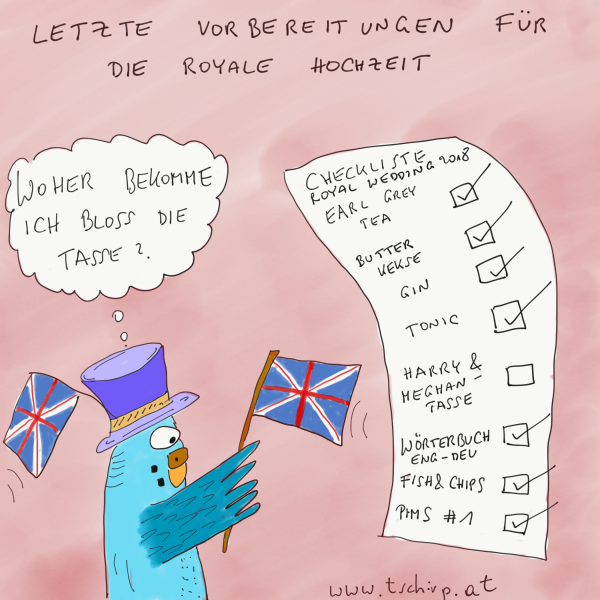 LETZTE VORBEREITUNGEN FÜR
DIE ROYALE HOCHZEIT
WOHER BEKOMME
ICH BLOSS DIE
TASSE?
CHECKLISTE
ROYAL WEDDING 2018
EARL GREY
TEA
BUTTER
KEKSE
GIN
TONIC
HARRY &
MEGHAN-
TASSE
WÖRTERBUCH
ENG-DEU
FISH & CHIPS
PIMS #1
www.tschirp.at